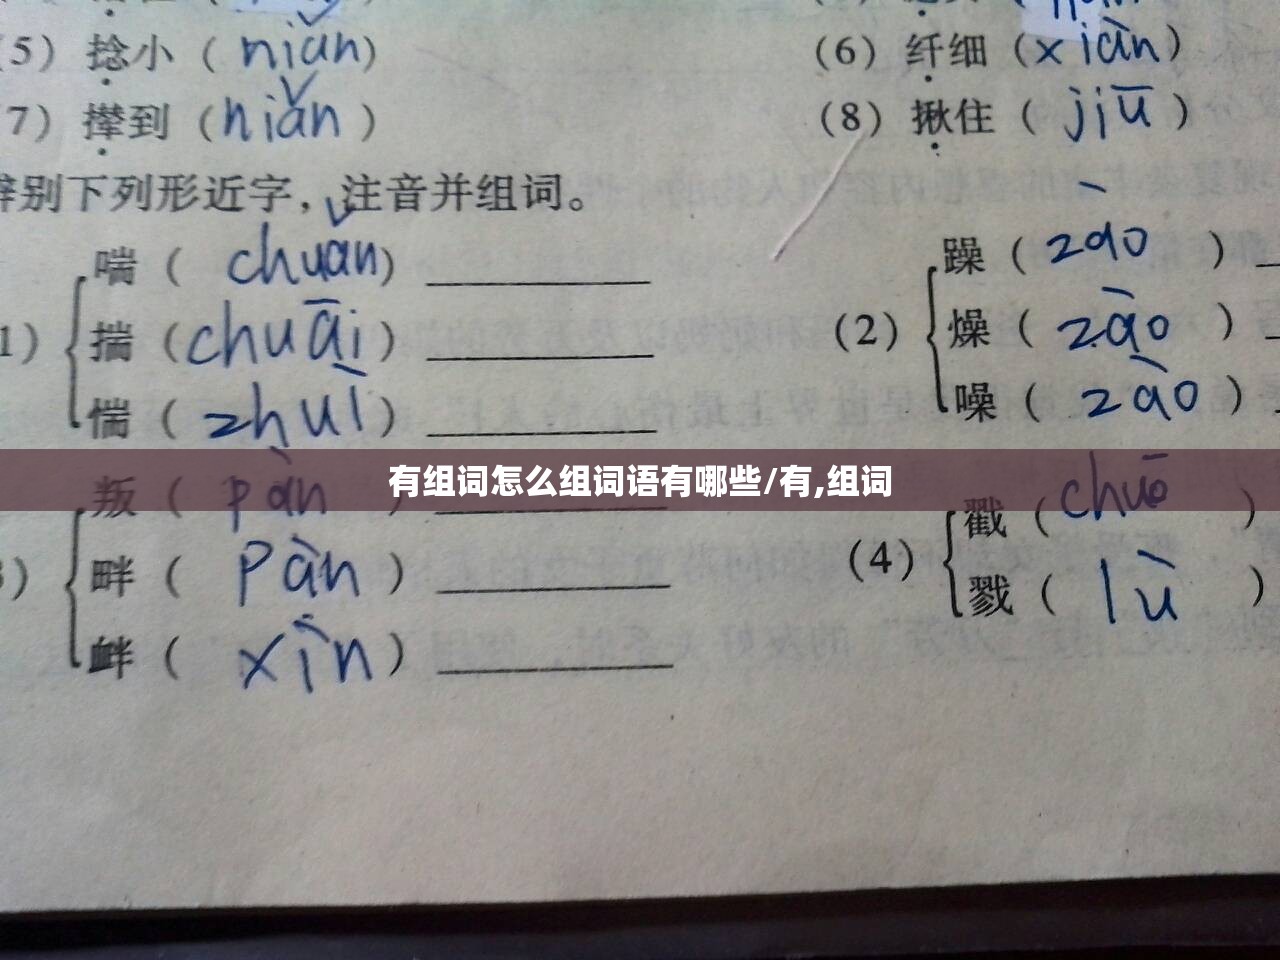 (5) 捻小 ( niǎn)
(6) 纤细 (xiàn)
7) 撵到 (niǎn )
(8) 揪住 ( jiū )
辨别下列形近字，注音并组词。
1)
喘 ( chuǎn)
揣 (chuāi)
惴 ( zhuì )
(2)
躁 ( zào )
燥 ( zào )
噪 ( zào )
有组词怎么组词语有哪些/有,组词
3)
叛 ( pàn )
畔 ( pàn )
衅 ( xìn )
(4)
戳 (chuō )
戮 ( lù )